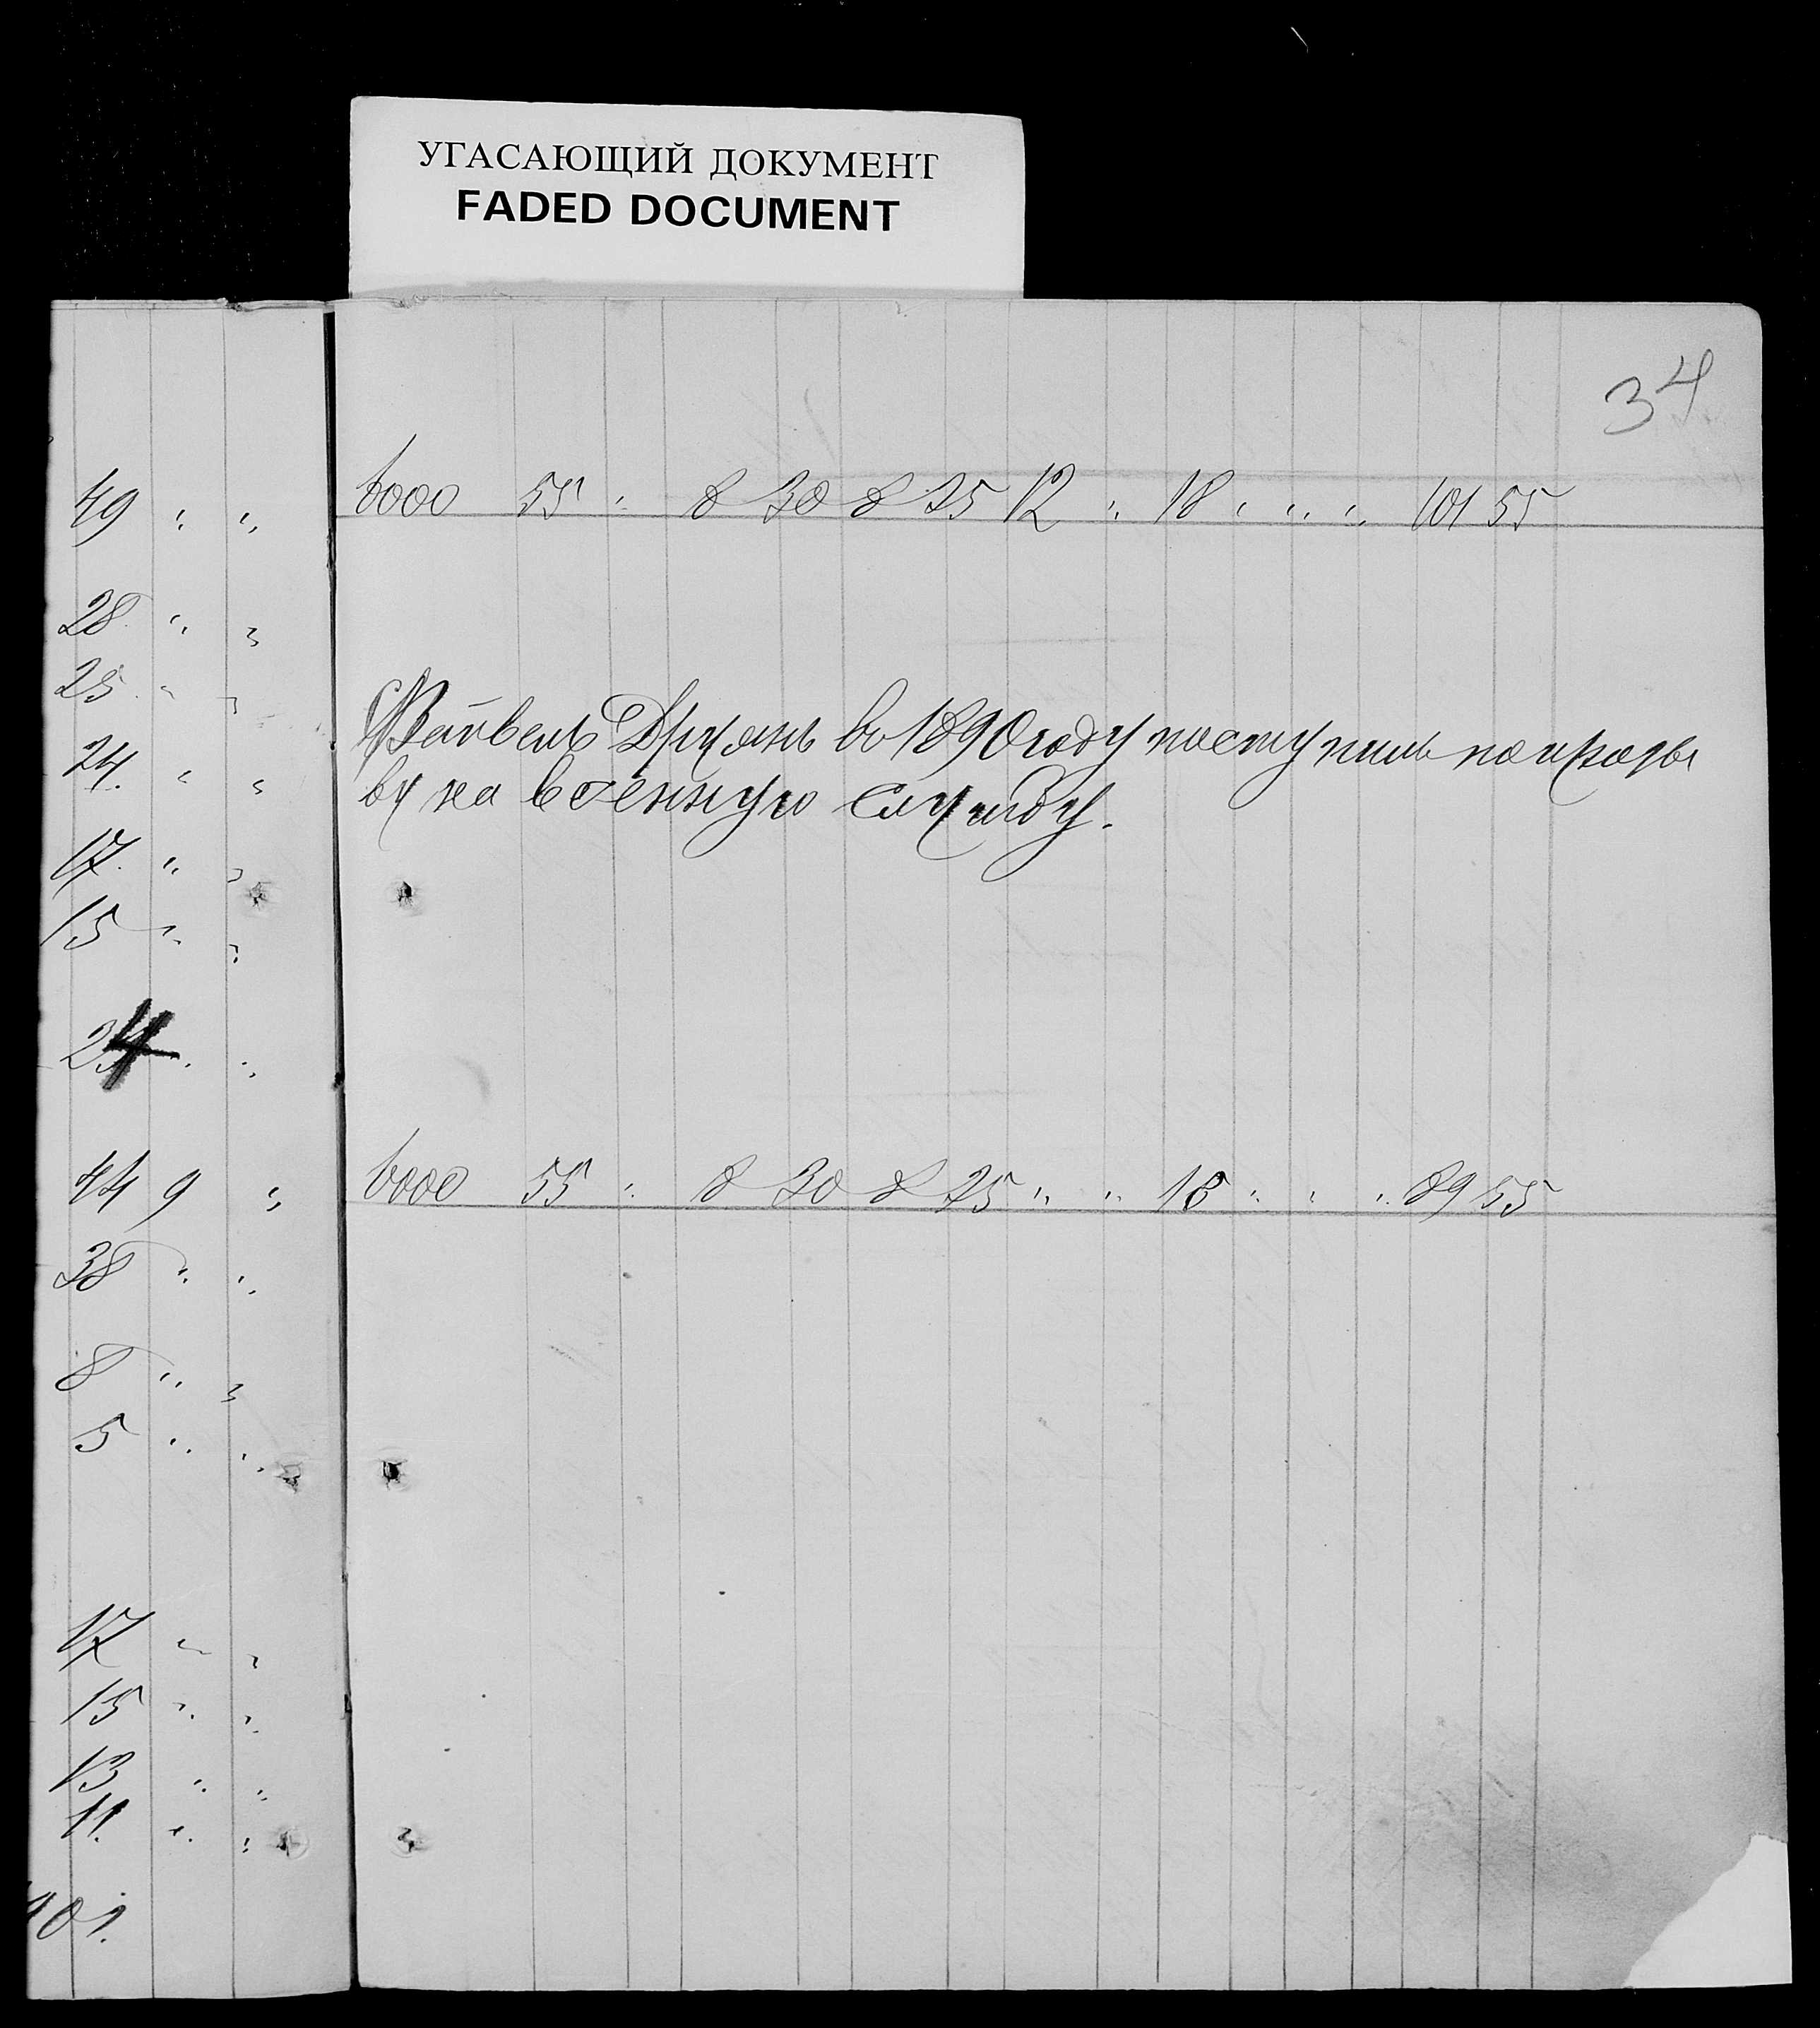 УГАСАЮЩИЙ ДОКУМЕНТ
FADED DOCUMENT
34
49 " "
28 " "
25 " "
24. " "
17. " "
15 " "
24 " "
44 9 "
38 " "
8 " "
5 " "
17 " "
15 " "
13 " "
11. " "
6000 55 " 8 30 8 25 12 " 18 " " " 101 55
Вайвель во 1890 году поступилъ по призы
ву на военную службу.
6000 55 " 8 30 8 25 " " 18 " " " 89 55